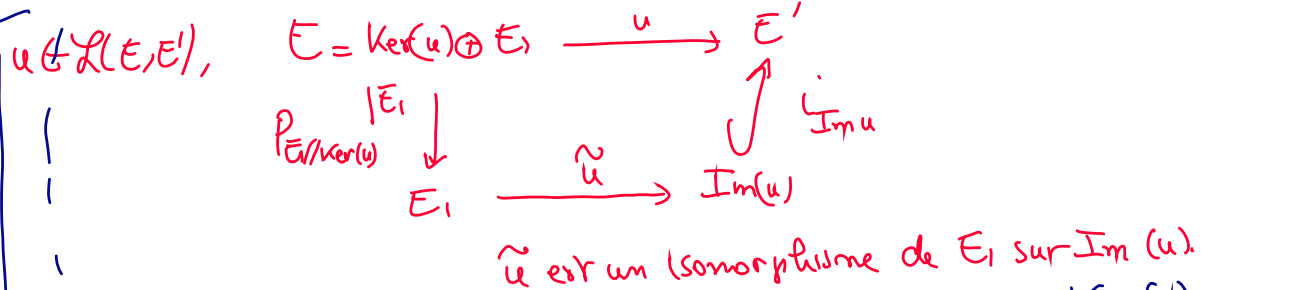 u ∈ ℒ(E,E'), E = Ker(u) ⊕ E₁ ⟶ E'
u
|E₁
P E₁//Ker(u)
i Im u
ũ
E₁ ⟶ Im(u)
ũ est un isomorphisme de E₁ sur Im(u).